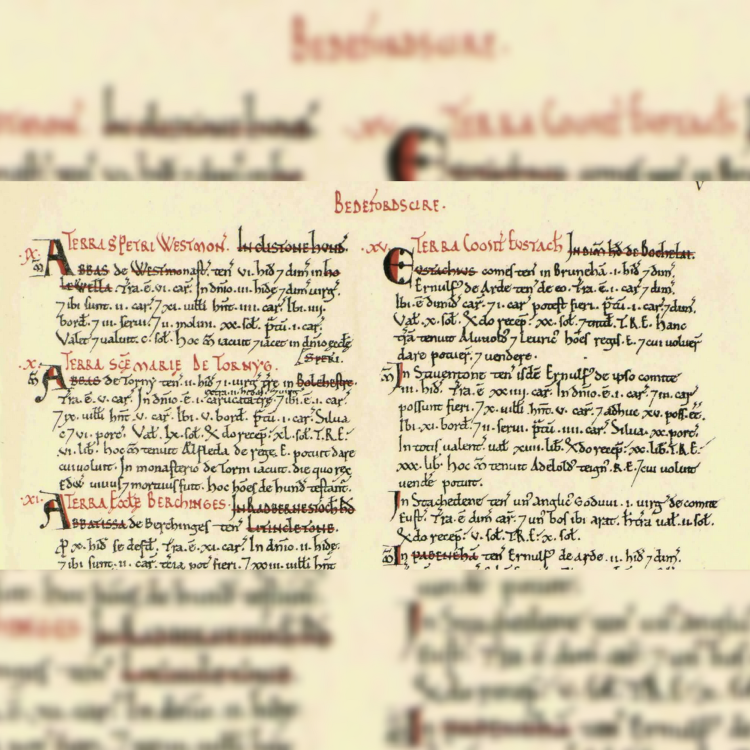 BEDEFORDSCIRE.
V
.IX. TERRA S PETRI WESTMON. IN CLISTONE HUND.
ABBAS de Westmonast ten vi. hid 7 dim in ho
lewella. Tra. ē. vi. car. In dnio. iii. hide 7 dim virg.
7 ibi sunt. ii. car. 7 xi. uilli hnt. iiii. car. Ibi. iii.
bord. 7 iii. serui. 7 ii. molini. xx. sol. ptū. i. car.
Valet 7 ualuit. c. sol. Hoc m̄ iacuit 7 iacet in dnio eccle
S PETRI.
.X. TERRA SCE MARIE DE TORNYG.
m̄ ABBAS de Torny ten. ii. hid 7 i. uirg tre in Bolehestre.
Tra. ē. In dnio. ē. i. carucata tre. 7 ibi. ē. i. car.
7 ix. uilli hnt. v. car. Ibi. v. bord. ptū. i. car. Silua
c 7 vi. porc. Val. lx. sol. Xdo recep. xl. sol. T.R.E.
vi. lib. hoc m̄ tenuit Alfleda de rege. E. potuit dare
cui uoluit. In monasterio de Torni iacuit die quo rex
Edw uiuus 7 mortuus fuit. hoc hoes de hund testant.
.XI. TERRA ECCLE BERCHINGES.
ABBATISSA de Berchinges ten LITINCLETONE.
P x. hid se defd. Tra. ē. xi. car. In dnio. ii. hide.
7 ibi sunt. ii. car. tcia pot fieri. 7 xxiii. uilli hnt
.XV. TERRA COMIT EUSTACH
EUSTACHIUS comes ten in Brunehā. i. hid 7 dim.
Ernulf de Arde ten de eo. Tra. ē. i. car. 7 dim.
Ibi. ē dimid car. 7 i. car potest fieri. ptū. i. car. 7 dim.
Val. x. sol. Xdo recep. xx. sol. 7 totid. T.R.E. Hanc
trā tenuit Aluuold 7 Leuric hoes regis. E. 7 cui uoluer
dare potuer. 7 uendere.
m̄ In Stauentone ten isdē Ernulf de ipso comite
iii. hid. Tra. ē xxiiii. car. In dnio. ē. i. car. 7 iii. car
possunt fieri. 7 x. uilli hnt. v. car. 7 adhuc xv. poss. ee.
Ibi. xi. bord. 7 ii. serui. ptū. iiii. car. Silua. xx. porc.
In totis ualent. ual xviii. lib. Xdo recep. xx. lib. T.R.E.
xxx. lib. Hoc m̄ tenuit Adelold teign. R.E. 7 cui uoluit
uende potuit.
In Stachedene ten un anglic Goduui. i. uirg de comite
Eust. Tra. ē dim car. 7 un bos ibi arat. hec tra ual. ii. sol.
Xdo recep. v. sol. T.R.E. x. sol.
m̄ In PABENEHĀ ten Ernulf de Arde. ii. hid 7 dim.